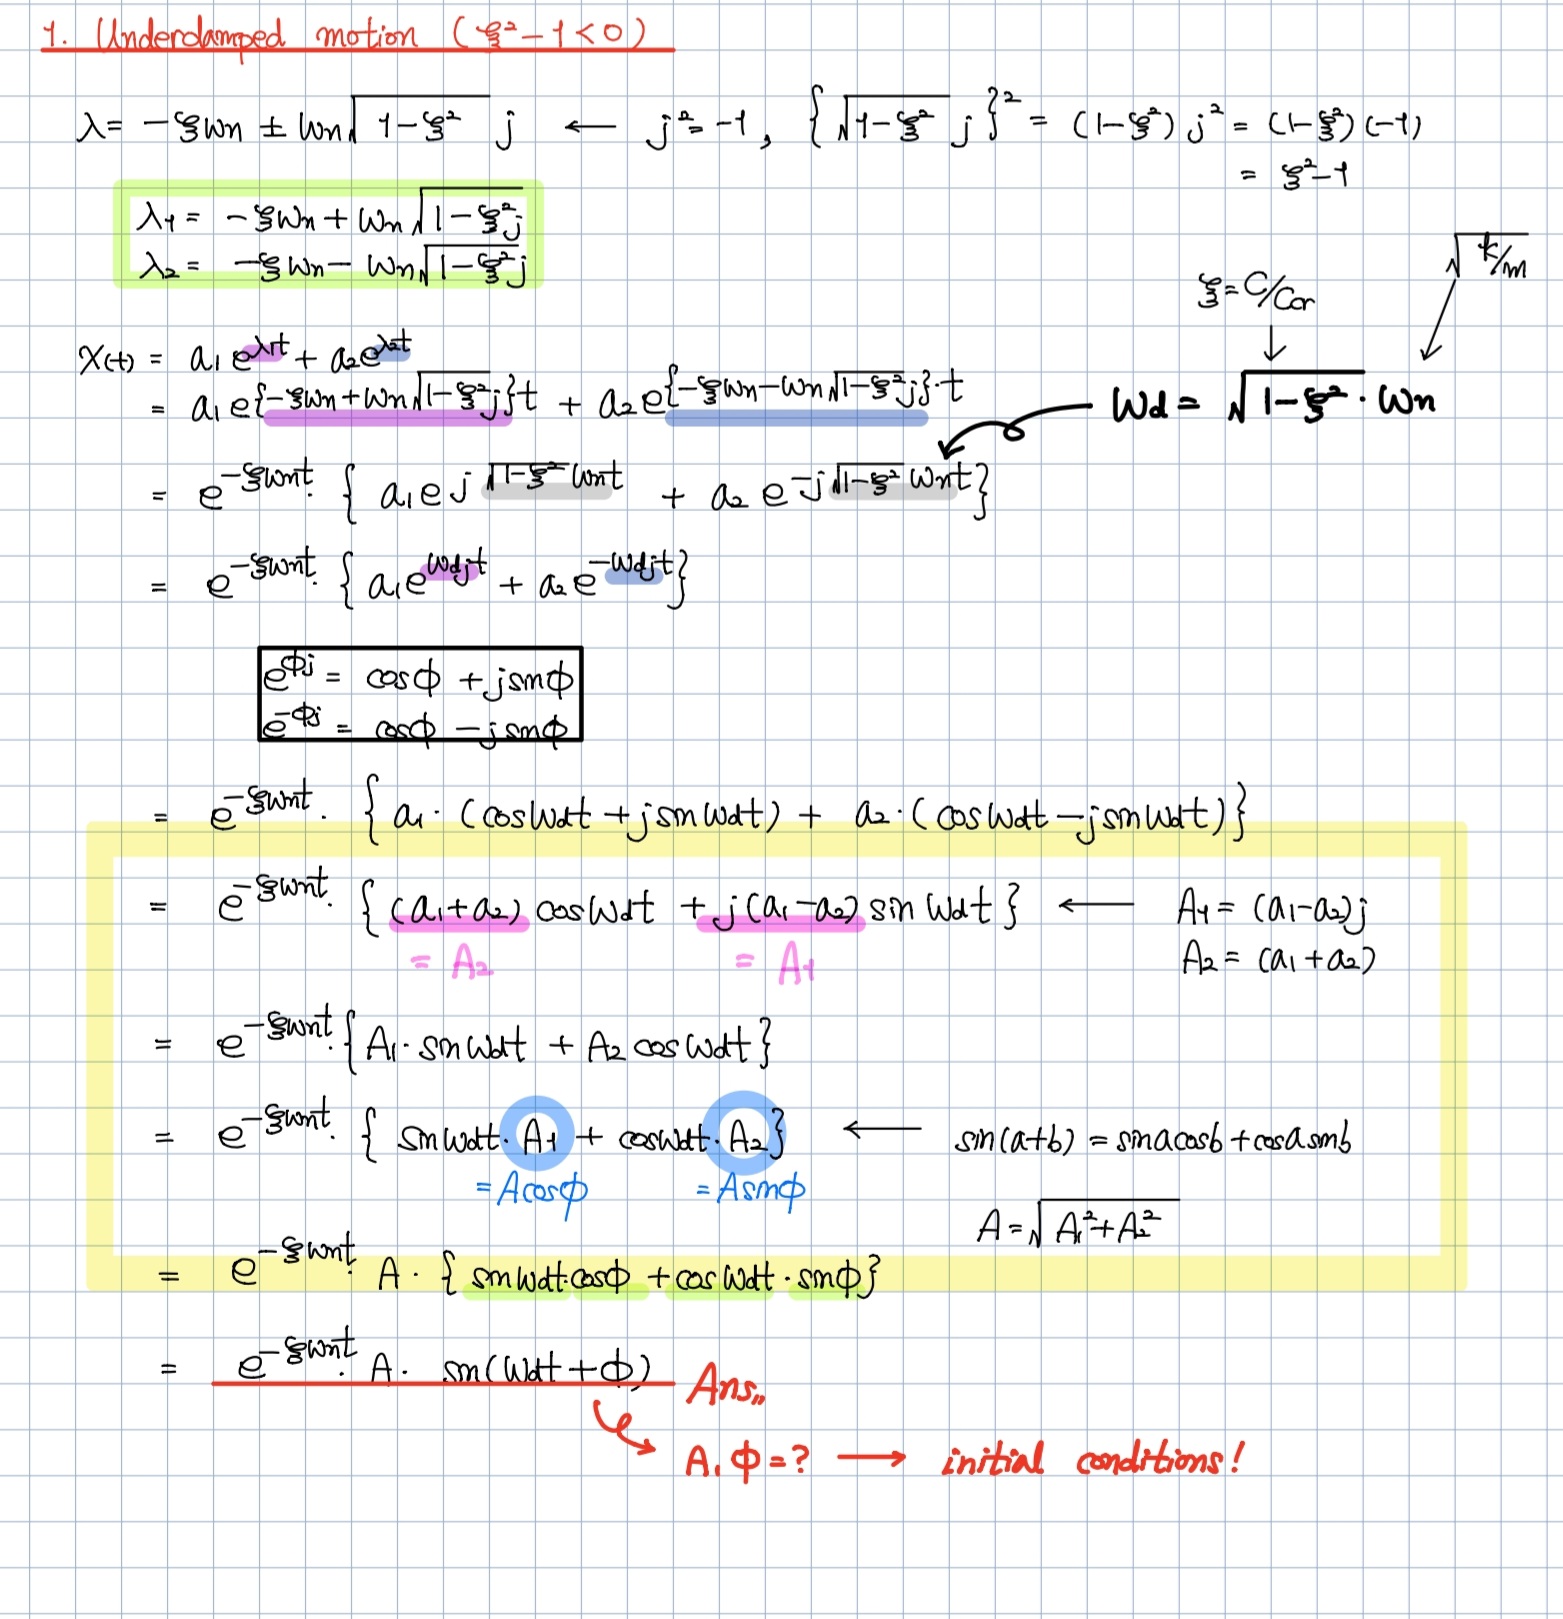 1. Underdamped motion (ξ²-1<0)
λ = -ξωn ± ωn√(1-ξ²) j ← j² = -1, {√(1-ξ²) j}² = (1-ξ²) j² = (1-ξ²)(-1)
= ξ²-1
λ1 = -ξωn + ωn√(1-ξ²) j
λ2 = -ξωn - ωn√(1-ξ²) j
√(k/m)
ξ = C/Ccr
x(t) = a1 e^(λ1t) + a2 e^(λ2t)
= a1 e^({-ξωn+ωn√(1-ξ²) j}t) + a2 e^({-ξωn-ωn√(1-ξ²) j}·t)
ωd = √(1-ξ²) · ωn
= e^(-ξωnt) · { a1 e^(j√(1-ξ²) ωnt) + a2 e^(-j√(1-ξ²) ωnt) }
= e^(-ξωnt) · { a1 e^(ωdjt) + a2 e^(-ωdjt) }
e^(φj) = cosφ + jsinφ
e^(-φj) = cosφ - jsinφ
= e^(-ξωnt) · { a1·(cosωdt + jsinωdt) + a2·(cosωdt - jsinωdt) }
= e^(-ξωnt) · { (a1+a2) cosωdt + j(a1-a2) sinωdt } ← A1 = (a1-a2)j
= A2 = A1 A2 = (a1+a2)
= e^(-ξωnt) · { A1·sinωdt + A2 cosωdt }
= e^(-ξωnt) · { sinωdt·A1 + cosωdt·A2 } ← sin(a+b) = sinacosb + cosasinb
= Acosφ = Asinφ
A = √(A1²+A2²)
= e^(-ξωnt) · A · { sinωdt·cosφ + cosωdt·sinφ }
= e^(-ξωnt) · A · sin(ωdt+φ) Ans,,
A, φ = ? → initial conditions!